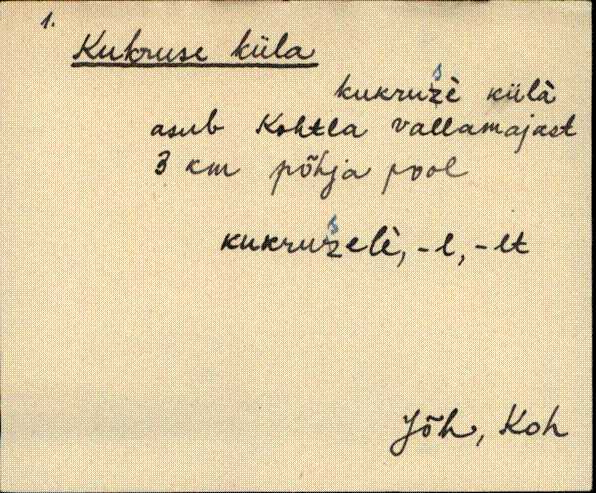 1.
Kukruse küla
s
kukruzè külà
asub Kohtla vallamajast
3 km põhja pool
s
kukruzelè, -l, -lt
Jõh, Koh